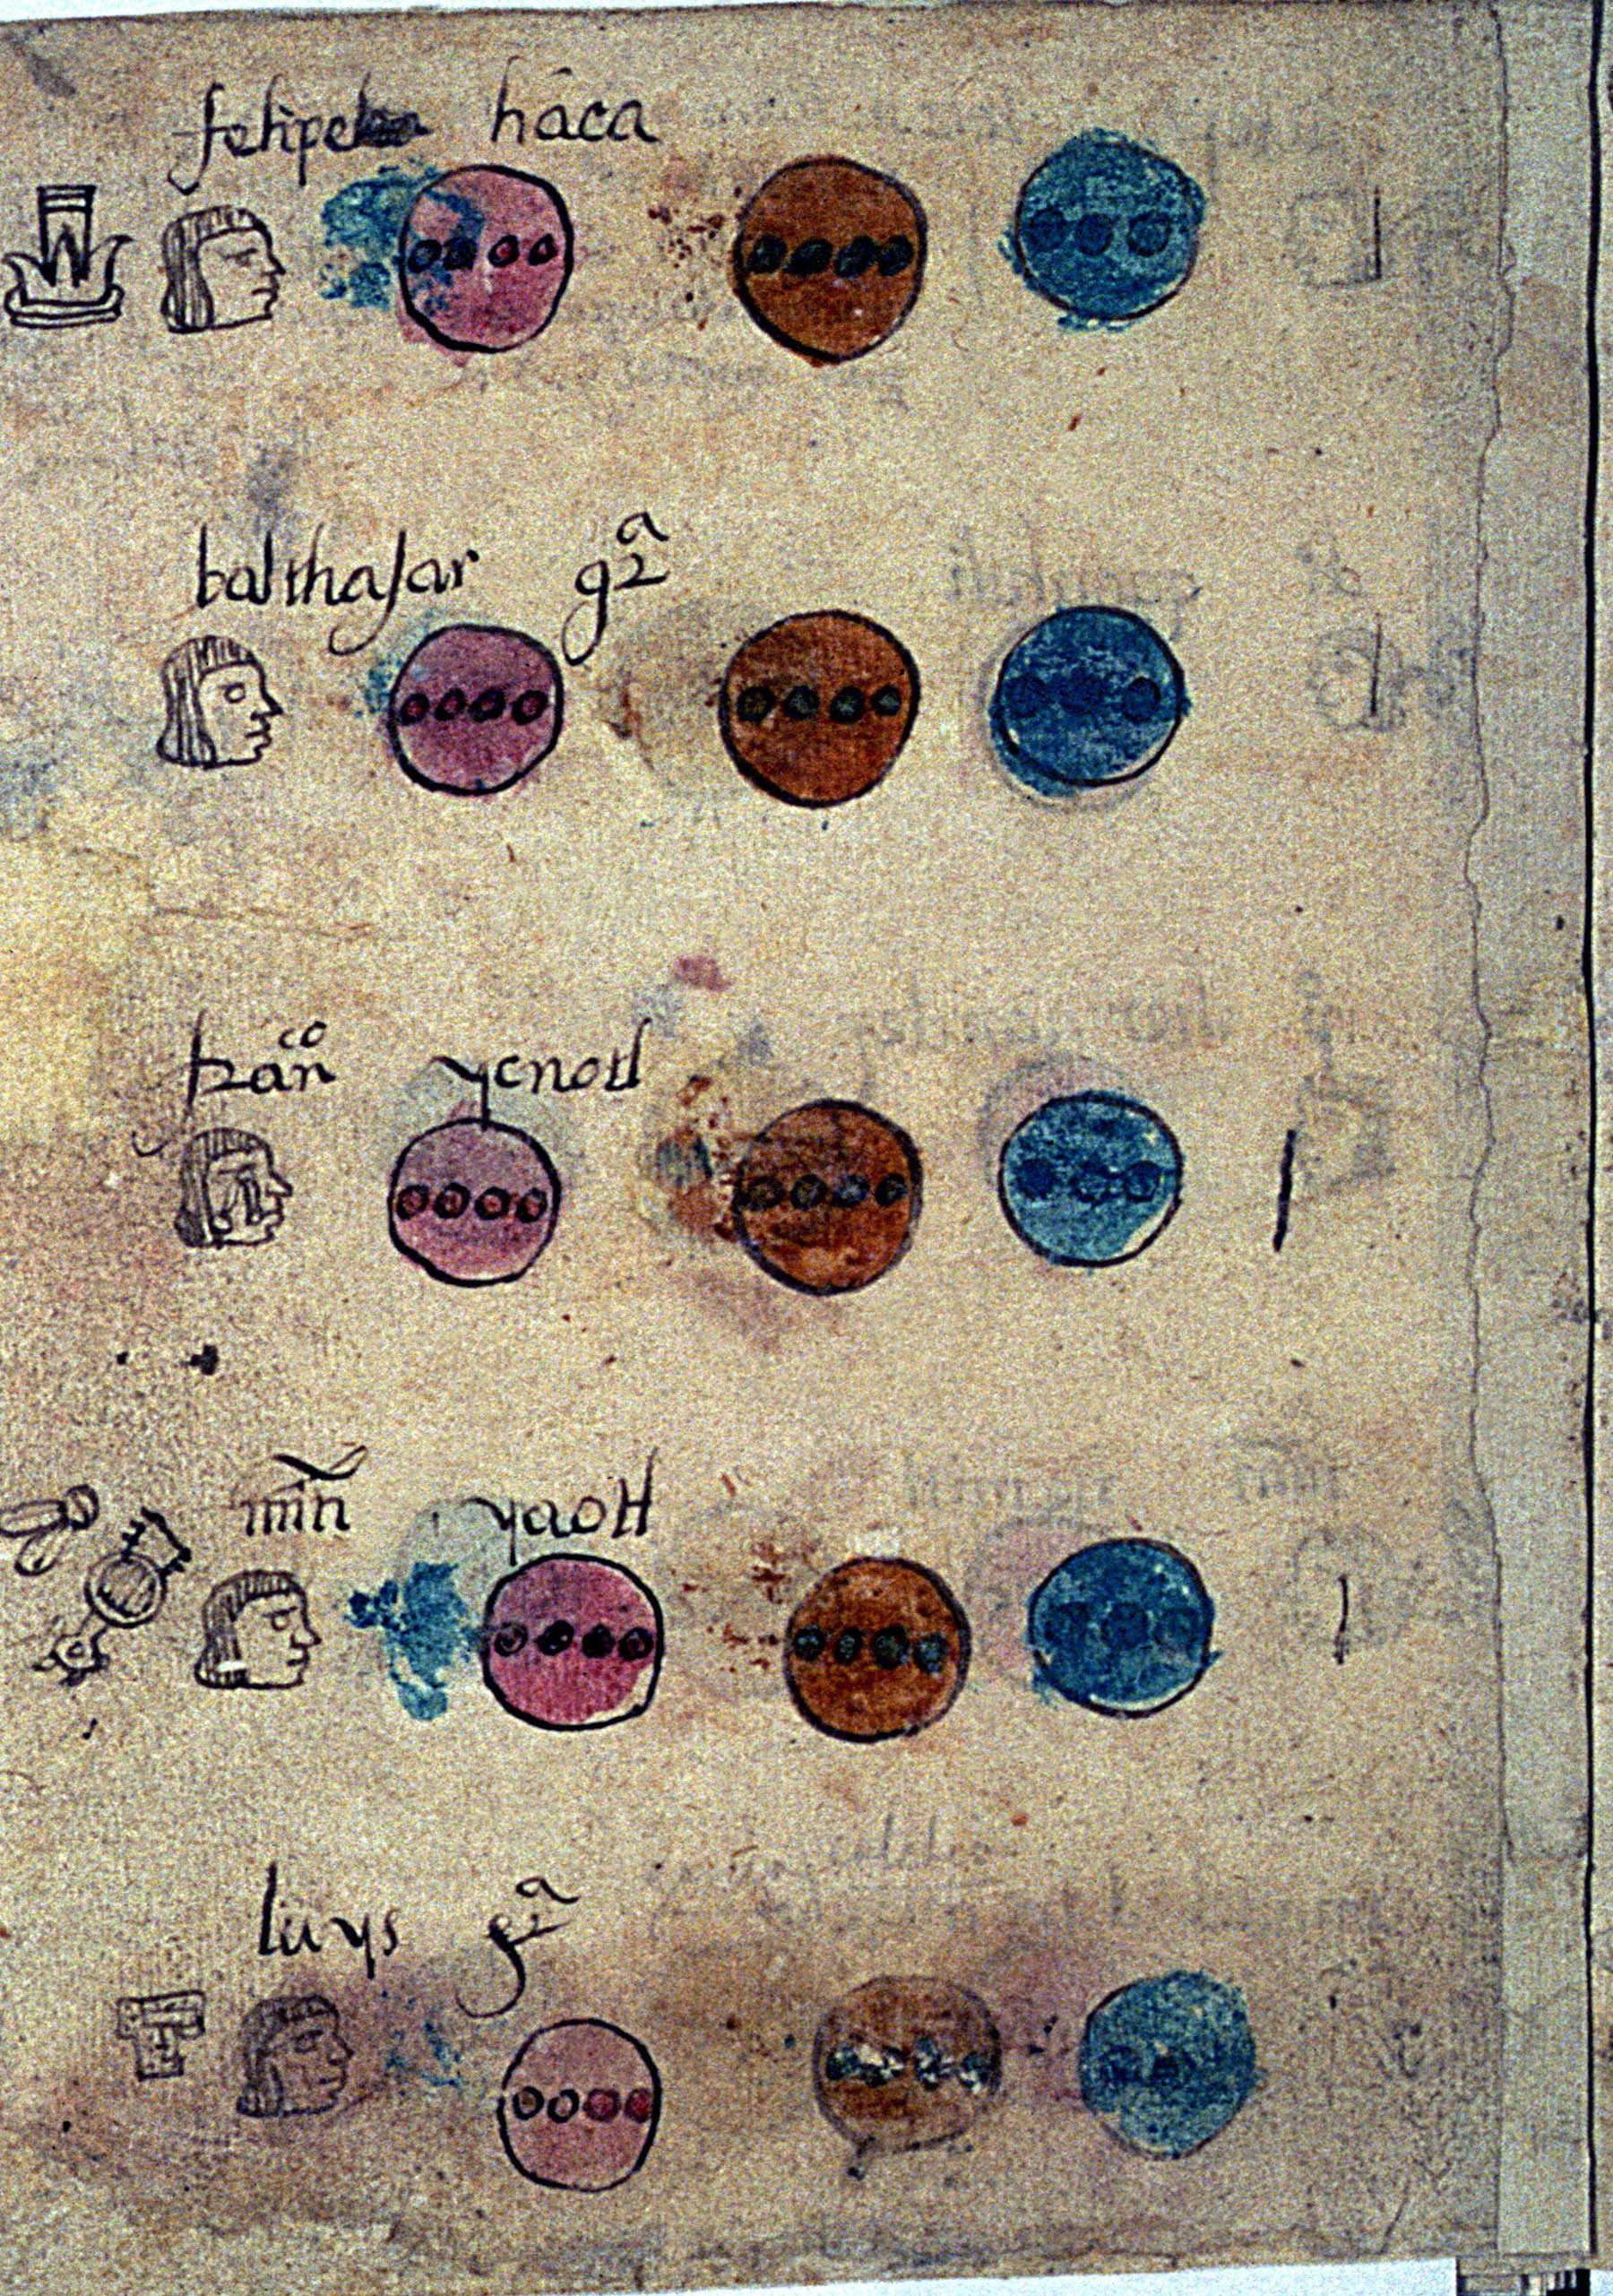 felipe haca
balthasar gra
franco ycnotl
min yaotl
luys gra